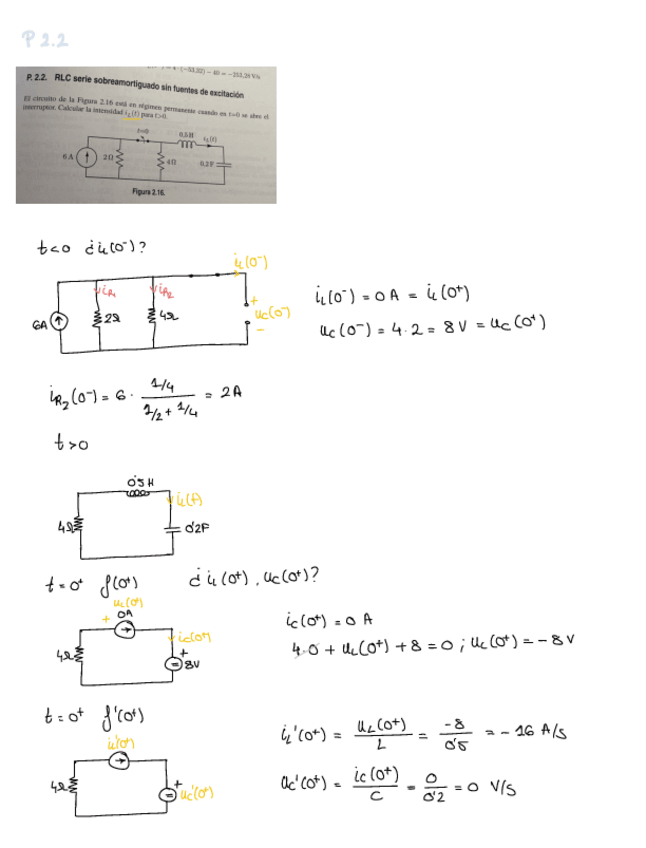 P 2.2
(-53,32) - 40 = -253,28 V/s
P. 2.2. RLC serie sobreamortiguado sin fuentes de excitación
El circuito de la Figura 2.16 está en régimen permanente cuando en t=0 se abre el
interruptor. Calcular la intensidad i_L(t) para t>0.
t=0
0,5 H
i_L(t)
6 A
2Ω
4Ω
0,2 F
Figura 2.16.
t<0 ¿i_L(0⁻)?
i_L(0⁻)
i_R1
i_R2
6A
2Ω
4Ω
+
u_C(0⁻)
-
i_L(0⁻) = 0 A = i_L(0⁺)
u_C(0⁻) = 4·2 = 8 V = u_C(0⁺)
i_R2(0⁻) = 6 · (1/4)/(1/2 + 1/4) = 2 A
t>0
0'5 H
i_L(t)
4Ω
0'2F
t=0⁺ f(0⁺) ¿i_L(0⁺), u_C(0⁺)?
u_L(0⁺)
+ 0A
i_C(0⁺)
4Ω
+
8V
i_C(0⁺) = 0 A
4·0 + u_L(0⁺) + 8 = 0 ; u_L(0⁺) = -8 V
t=0⁺ f'(0⁺)
i_L'(0⁺)
4Ω
+
u_C'(0⁺)
i_L'(0⁺) = u_L(0⁺)/L = -8/0'5 = -16 A/s
u_C'(0⁺) = i_C(0⁺)/C = 0/0'2 = 0 V/s